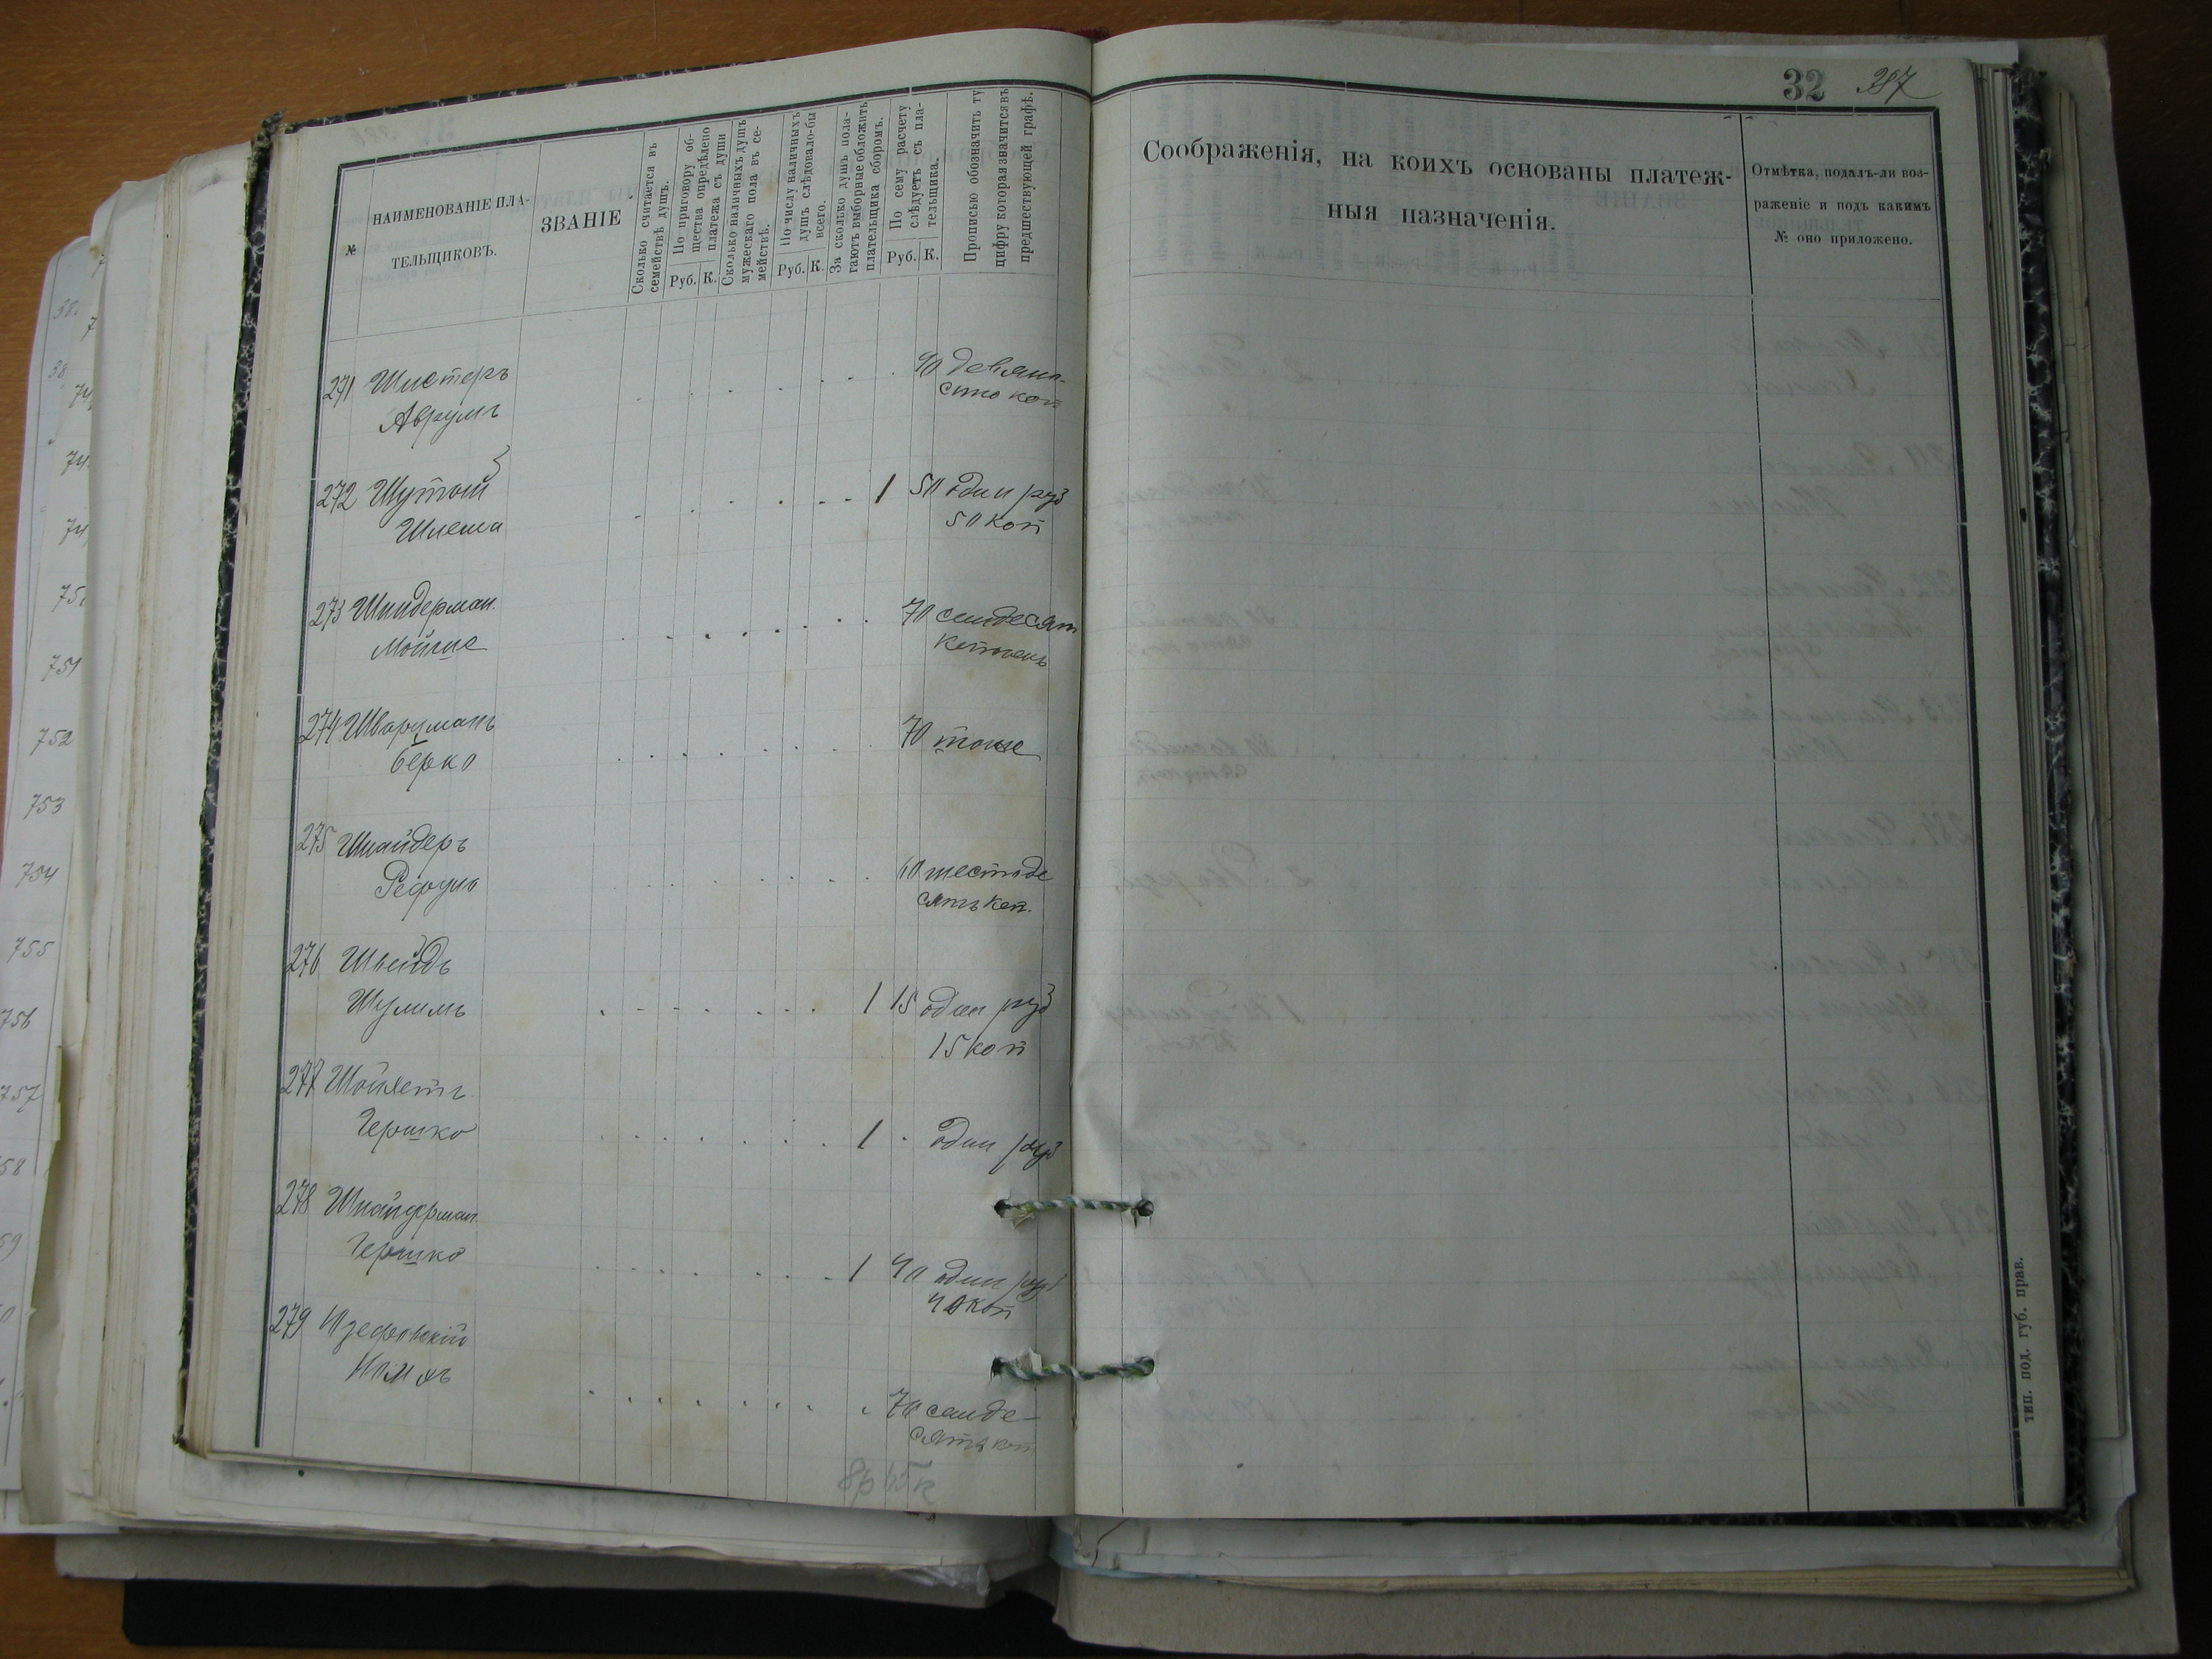 32 387
№
НАИМЕНОВАНІЕ ПЛА-
ТЕЛЬЩИКОВЪ.
ЗВАНІЕ
Сколько считается въ
семействѣ душъ.
По приговору об-
щества опредѣлено
платежа съ души
Руб. К.
Сколько наличныхъ душъ
мужескаго пола въ се-
мействѣ.
По числу наличныхъ
душъ слѣдовало-бы
всего.
Руб. К.
За сколько душъ пола-
гаютъ выборные обложить
плательщика сборомъ.
По сему расчету
слѣдуетъ съ пла-
тельщика.
Руб. К.
Прописью обозначить ту
цифру которая значится въ
предшествующей графѣ.
Соображенія, на коихъ основаны платеж-
ныя назначенія.
Отмѣтка, подалъ-ли воз-
раженіе и подъ какимъ
№ оно приложено.
271 Шистеръ 90 девяно-
Аврумъ сто коп
272 Шутый 1 50 один руб
Шлема 50 коп
273 Шнидерман 70 семдесят
Мойше копѣекъ
274 Шварцманъ 70 тоже
Берко
275 Шнайдеръ 60 шестьде
Рефуло сятъ коп.
276 Швейдъ 1 15 один руб
Шулимъ 15 коп
277 1 один руб
Гершко
278 Шнайдерман 1 40 один руб
Гершко 40 коп
279 70 семде-
сятъ коп
8р 15к
тип. под. губ. прав.
751
752
753
754
755
756
757